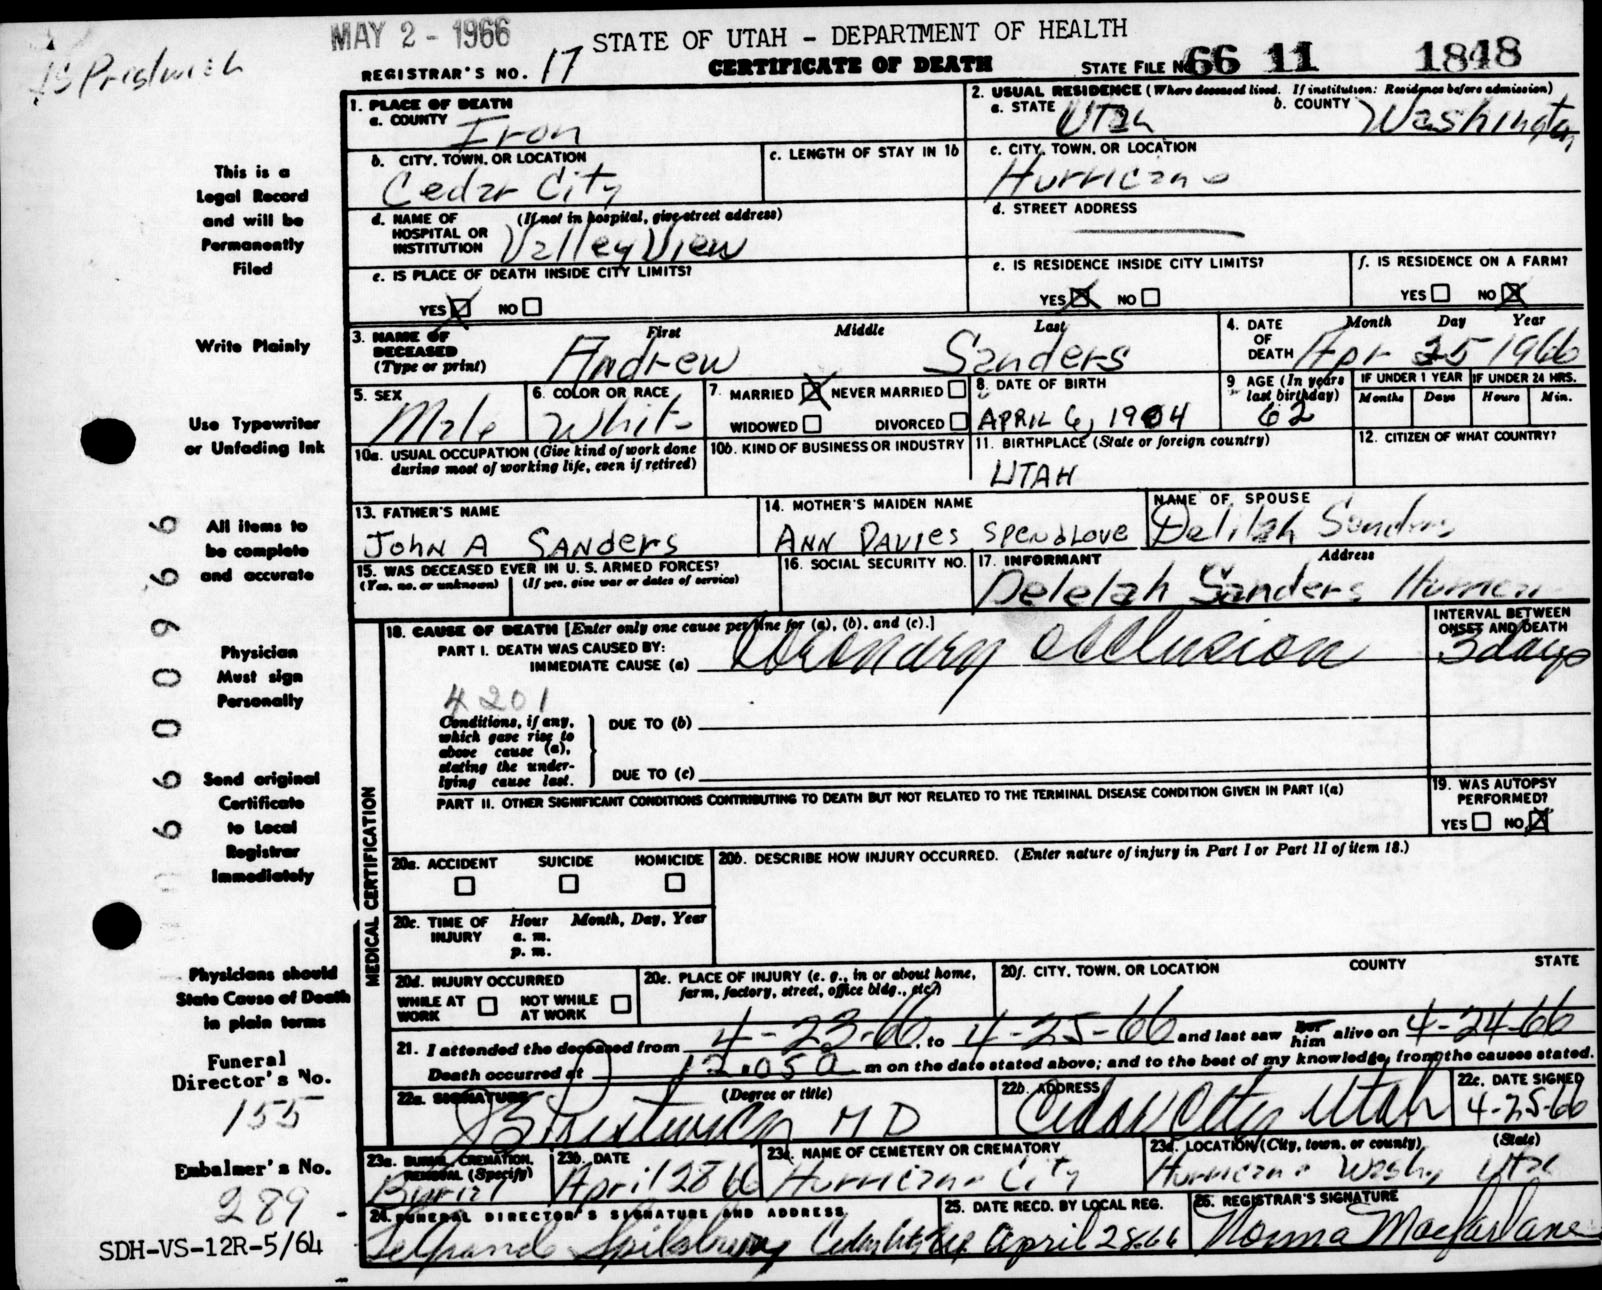 MAY 2 - 1966
STATE OF UTAH - DEPARTMENT OF HEALTH
CERTIFICATE OF DEATH
REGISTRAR'S NO. 17
STATE FILE NO. 66 11 1848
JS Prestwich
This is a
Legal Record
and will be
Permanently
Filed
Write Plainly
Use Typewriter
or Unfading Ink
All items to
be complete
and accurate
Physician
Must sign
Personally
Send original
Certificate
to Local
Registrar
Immediately
Physicians should
State Cause of Death
in plain terms
Funeral
Director's No.
155
Embalmer's No.
289
SDH-VS-12R-5/64
6600966
1. PLACE OF DEATH
a. COUNTY Iron
2. USUAL RESIDENCE (Where deceased lived. If institution: Residence before admission)
a. STATE Utah b. COUNTY Washington
b. CITY, TOWN, OR LOCATION Cedar City
c. LENGTH OF STAY IN 1b
c. CITY, TOWN, OR LOCATION Hurricane
d. NAME OF HOSPITAL OR INSTITUTION (If not in hospital, give street address) Valley View
d. STREET ADDRESS
e. IS PLACE OF DEATH INSIDE CITY LIMITS?
YES NO
e. IS RESIDENCE INSIDE CITY LIMITS?
YES NO
f. IS RESIDENCE ON A FARM?
YES NO
3. NAME OF DECEASED (Type or print) First Middle Last
Andrew Sanders
4. DATE OF DEATH Month Day Year
Apr 25 1966
5. SEX Male
6. COLOR OR RACE White
7. MARRIED NEVER MARRIED
WIDOWED DIVORCED
8. DATE OF BIRTH APRIL 6, 1904
9 AGE (In years last birthday) 62
IF UNDER 1 YEAR Months Days
IF UNDER 24 HRS. Hours Min.
10a. USUAL OCCUPATION (Give kind of work done during most of working life, even if retired)
10b. KIND OF BUSINESS OR INDUSTRY
11. BIRTHPLACE (State or foreign country) UTAH
12. CITIZEN OF WHAT COUNTRY?
13. FATHER'S NAME JOHN A SANders
14. MOTHER'S MAIDEN NAME ANN DAVIES SPENdLOVE
NAME OF SPOUSE Delilah Sanders
15. WAS DECEASED EVER IN U. S. ARMED FORCES?
(Yes, no, or unknown) (If yes, give war or dates of service)
16. SOCIAL SECURITY NO.
17. INFORMANT Address
Delelah Sanders
18. CAUSE OF DEATH [Enter only one cause per line for (a), (b), and (c).]
PART I. DEATH WAS CAUSED BY:
IMMEDIATE CAUSE (a) Coronary Occlusion
INTERVAL BETWEEN ONSET AND DEATH
3 days
4201
Conditions, if any, which gave rise to above cause (a), stating the underlying cause last.
DUE TO (b)
DUE TO (c)
PART II. OTHER SIGNIFICANT CONDITIONS CONTRIBUTING TO DEATH BUT NOT RELATED TO THE TERMINAL DISEASE CONDITION GIVEN IN PART I(a)
19. WAS AUTOPSY PERFORMED?
YES NO
MEDICAL CERTIFICATION
20a. ACCIDENT SUICIDE HOMICIDE
20b. DESCRIBE HOW INJURY OCCURRED. (Enter nature of injury in Part I or Part II of item 18.)
20c. TIME OF INJURY Hour Month, Day, Year
a. m.
p. m.
20d. INJURY OCCURRED
WHILE AT WORK NOT WHILE AT WORK
20e. PLACE OF INJURY (e. g., in or about home, farm, factory, street, office bldg., etc.)
20f. CITY, TOWN, OR LOCATION COUNTY STATE
21. I attended the deceased from 4-23-66, to 4-25-66 and last saw her him alive on 4-24-66
Death occurred at 12:05 a m on the date stated above; and to the best of my knowledge, from the causes stated.
22a. SIGNATURE (Degree or title)
JS Prestwich MD
22b. ADDRESS Cedar City Utah
22c. DATE SIGNED 4-25-66
23a. BURIAL, CREMATION, REMOVAL (Specify) Burial
23b. DATE April 28 66
23c. NAME OF CEMETERY OR CREMATORY Hurricane City
23d. LOCATION (City, town, or county) (State)
Hurricane Wash, Utah
24. FUNERAL DIRECTOR'S SIGNATURE AND ADDRESS
Spilsbury Cedar City
25. DATE RECD. BY LOCAL REG. April 28-66
26. REGISTRAR'S SIGNATURE Norma Macfarlane